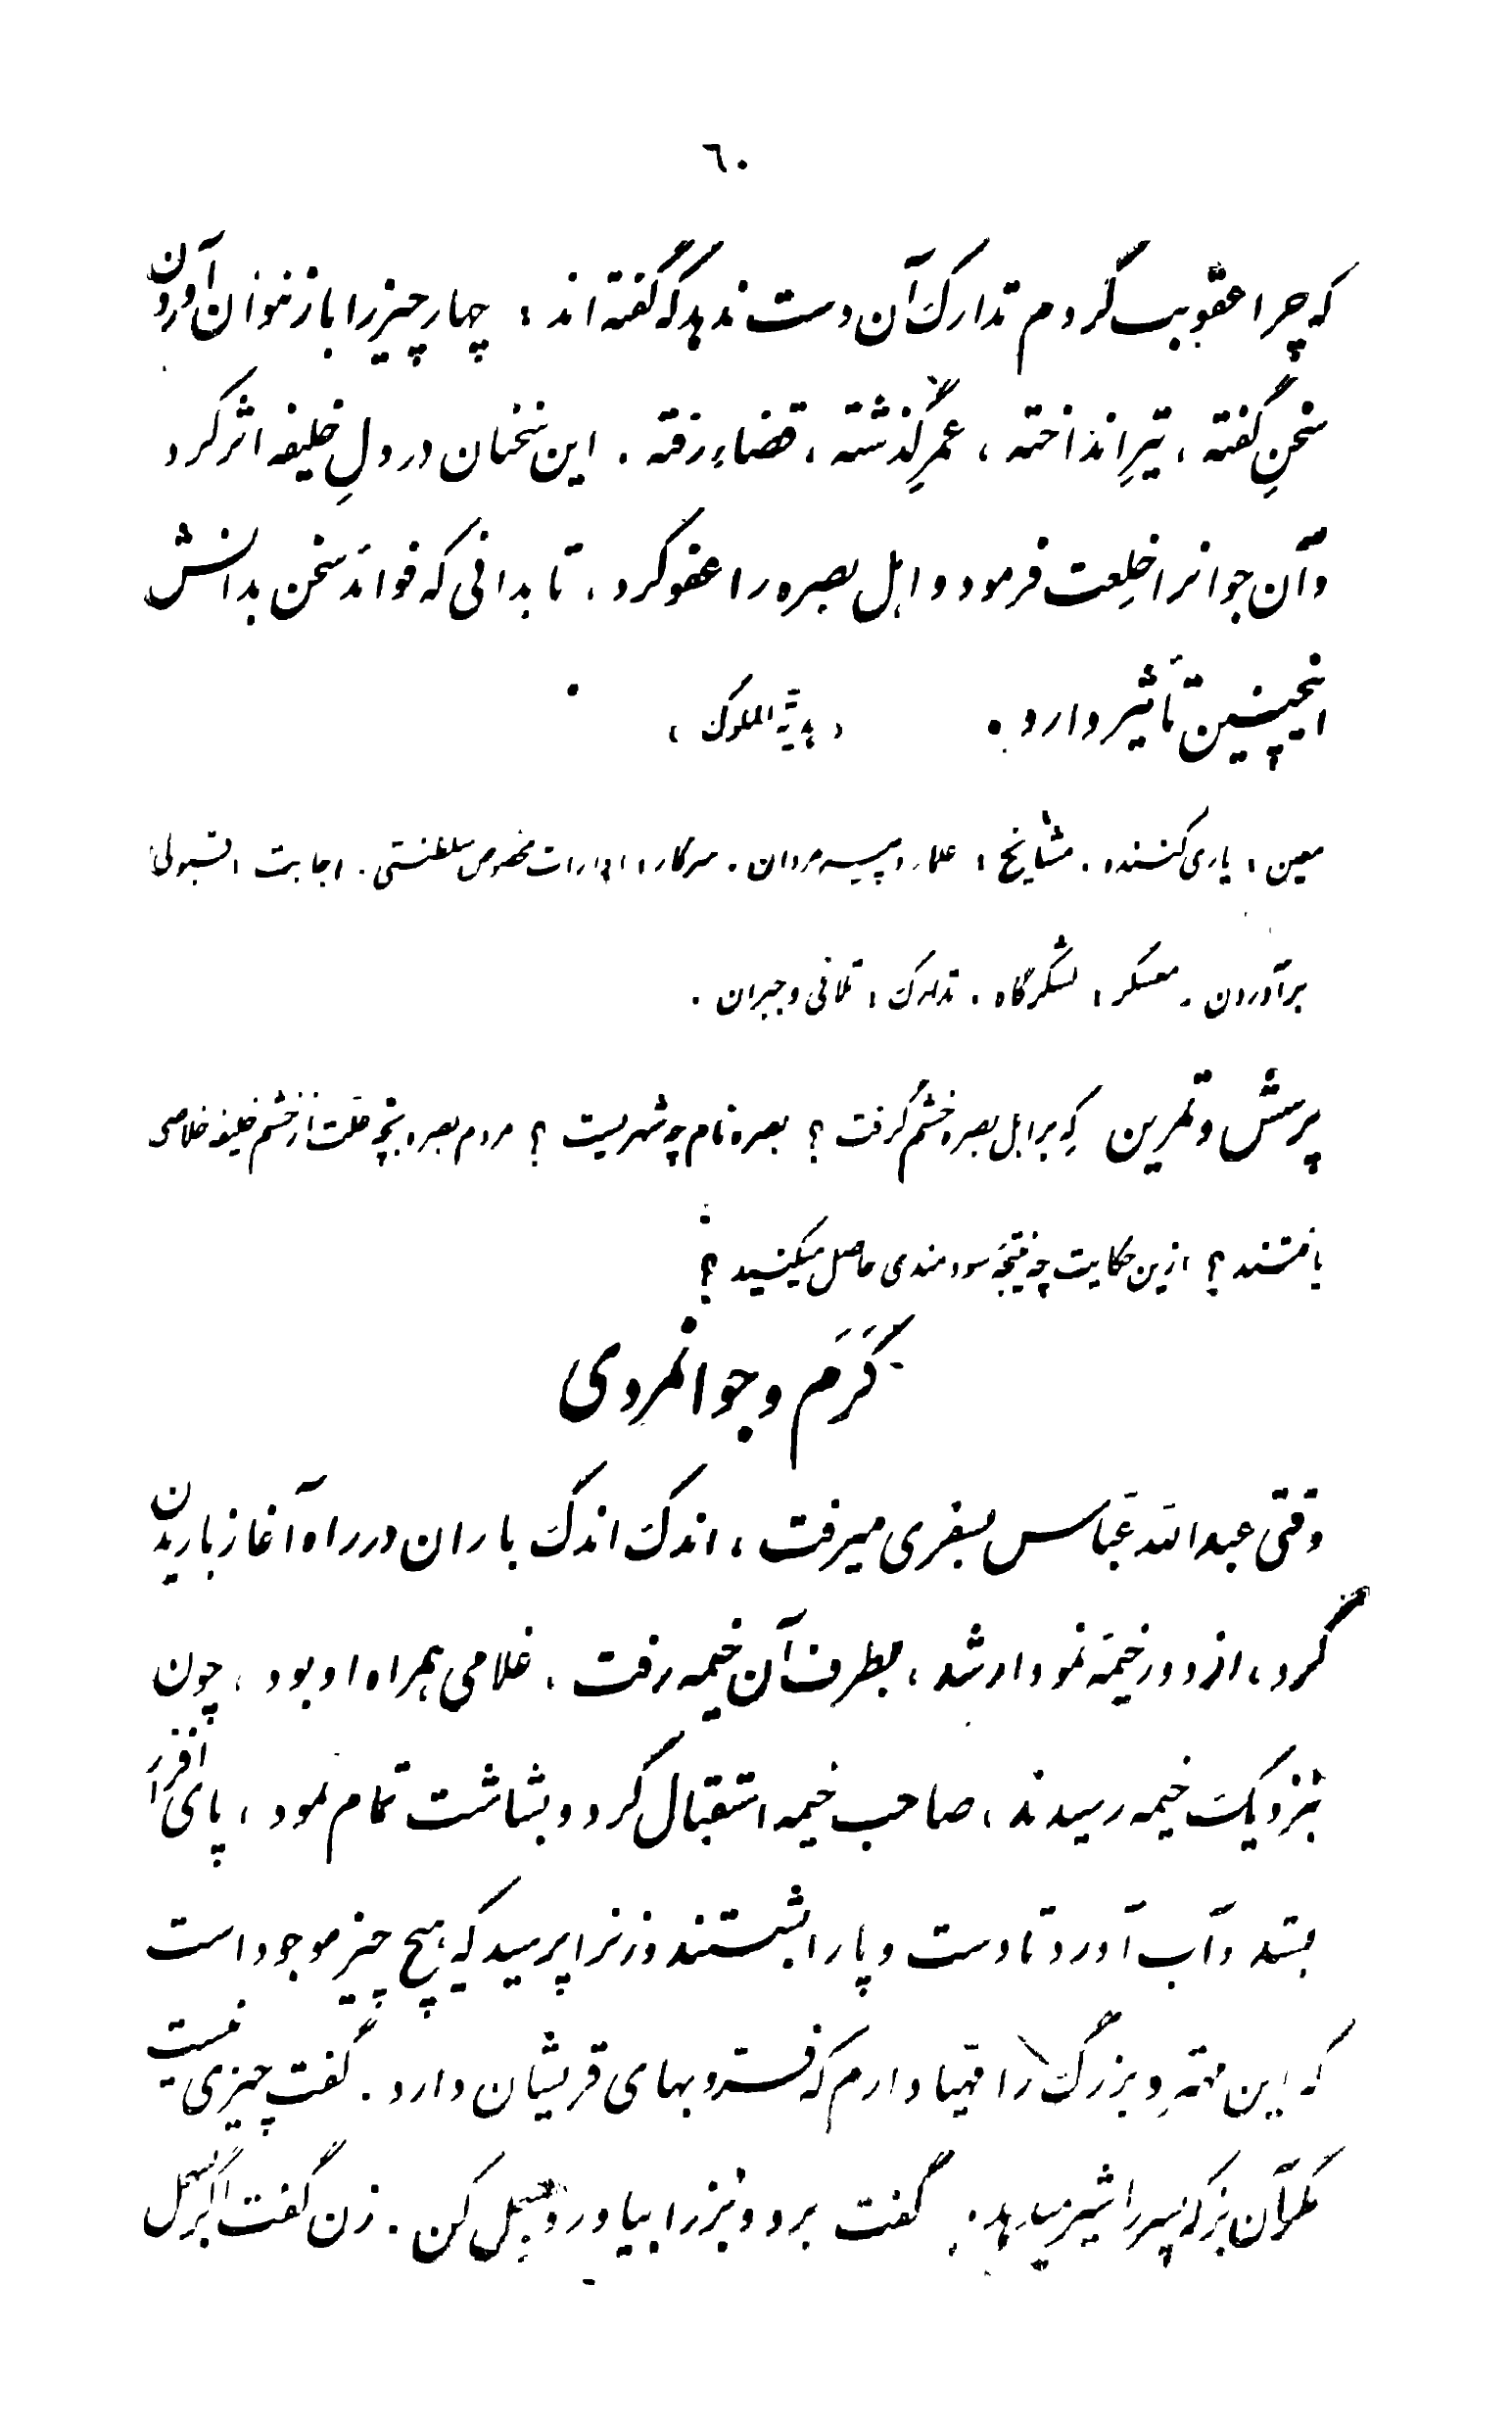 ٦٠
که چرا عقوبت کردم تدارک آن دست ندهد که گفته اند : چهار چیز را باز نتوان آوردن
سخنِ گفته ، تیرِ انداخته ، عمرِ گذشته ، قضاءِ رفته . این سخنان در دلِ خلیفه اثر کرد
و آن جوانرا خلِعت فرمود و اهل بصره را عفو کرد . تا بدانی که فوائد سخن بدانش
اینچنین تأثیر دارد . ( هدیّة الملوک )
معین : یاری کننده . مشایخ : علما و پیرمردان . سرکار : ادارات مخصوص سلطنتی . اجابت : قبول
برآوردن . معسکر : لشکرگاه . تدارک : تلافی و جبران .
پرسش و تمرین که بر اهل بصره خشم گرفت ؟ بصره نام چه شهریست ؟ مردم بصره بچه علت از خشم خلیفه خلاصی
یافتند ؟ ازین حکایت چه نتیجه سودمندی حاصل میکنید ؟
کَرَم و جوانمردی
وقتی عبدالله عبّاس بسفری میرفت ، اندک اندک باران در راه آغاز باریدن
کرد ، از دور خیمهٔ نمودار شد ، بطرف آن خیمه رفت ، غلامی همراه او بود ، چون
نزدیک خیمه رسیدند ، صاحب خیمه استقبال کرد و بشاشت تمام نمود ، پای افزار
بستد و آب آورد تا دست و پا را بشستند و زنرا پرسید که هیچ چیز موجود است
که این مهترِ بزرگ را مهیّا دارم که فرّ و بهای قریشان دارد . گفت چیزی نیست
مگر آن بز که پسر را شیر میدهد . گفت برو و بز را بیاور و بسمل کن . زن گفت اگر بسمل